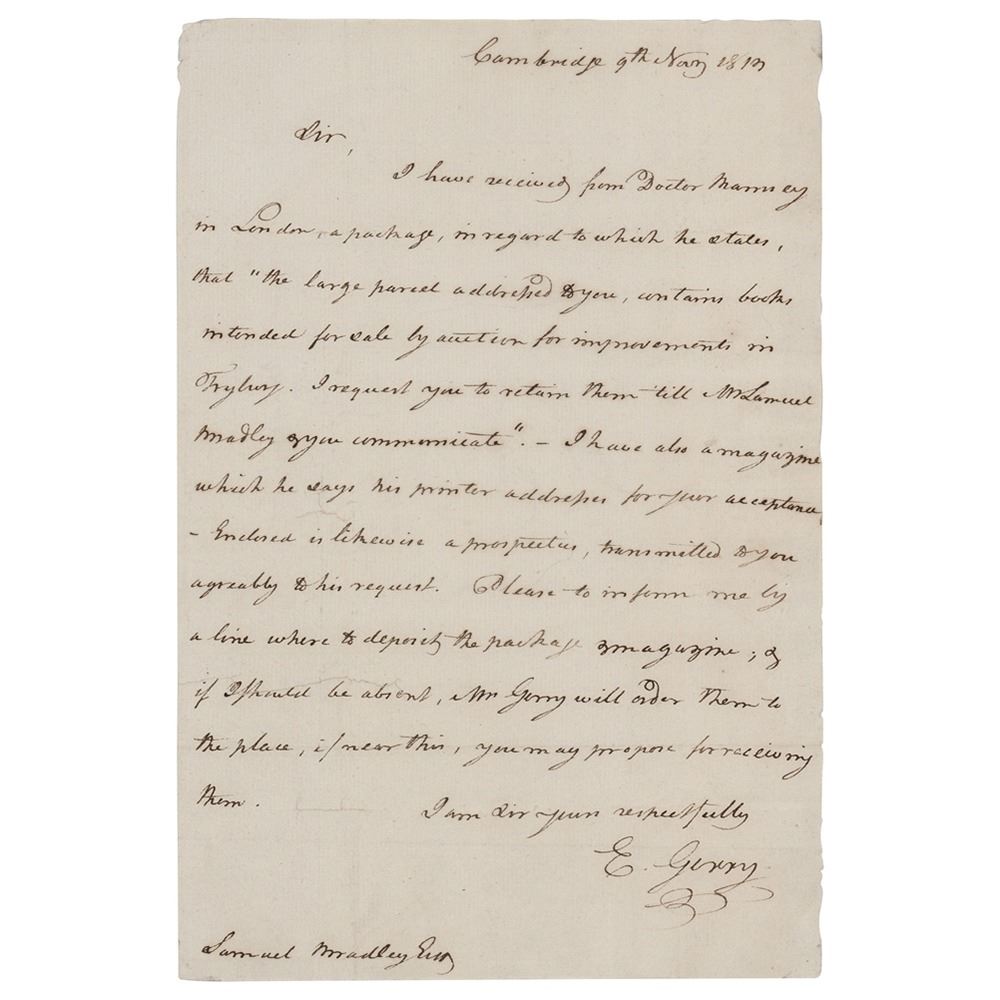 Cambridge 9th Novr 1812
Sir,
I have received from Doctor Ramsey
in London, a package, in regard to which he states,
that "the large parcel addressed to you, contains books
intended for sale by auction for improvements in
Fryburg. I request you to retain them till Mr Samuel
Bradley & you communicate". - I have also a magazine
which he says his printer addresses for your acceptance
- Enclosed is likewise a prospectus, transmitted to you
agreably to his request. Please to inform me by
a line where to deposit the package & magazine; &
if I should be absent, Mrs Gerry will order them to
the place, if near this, you may propose for receiving
them.
I am Sir yours respectfully
E. Gerry
Samuel Bradley Esq